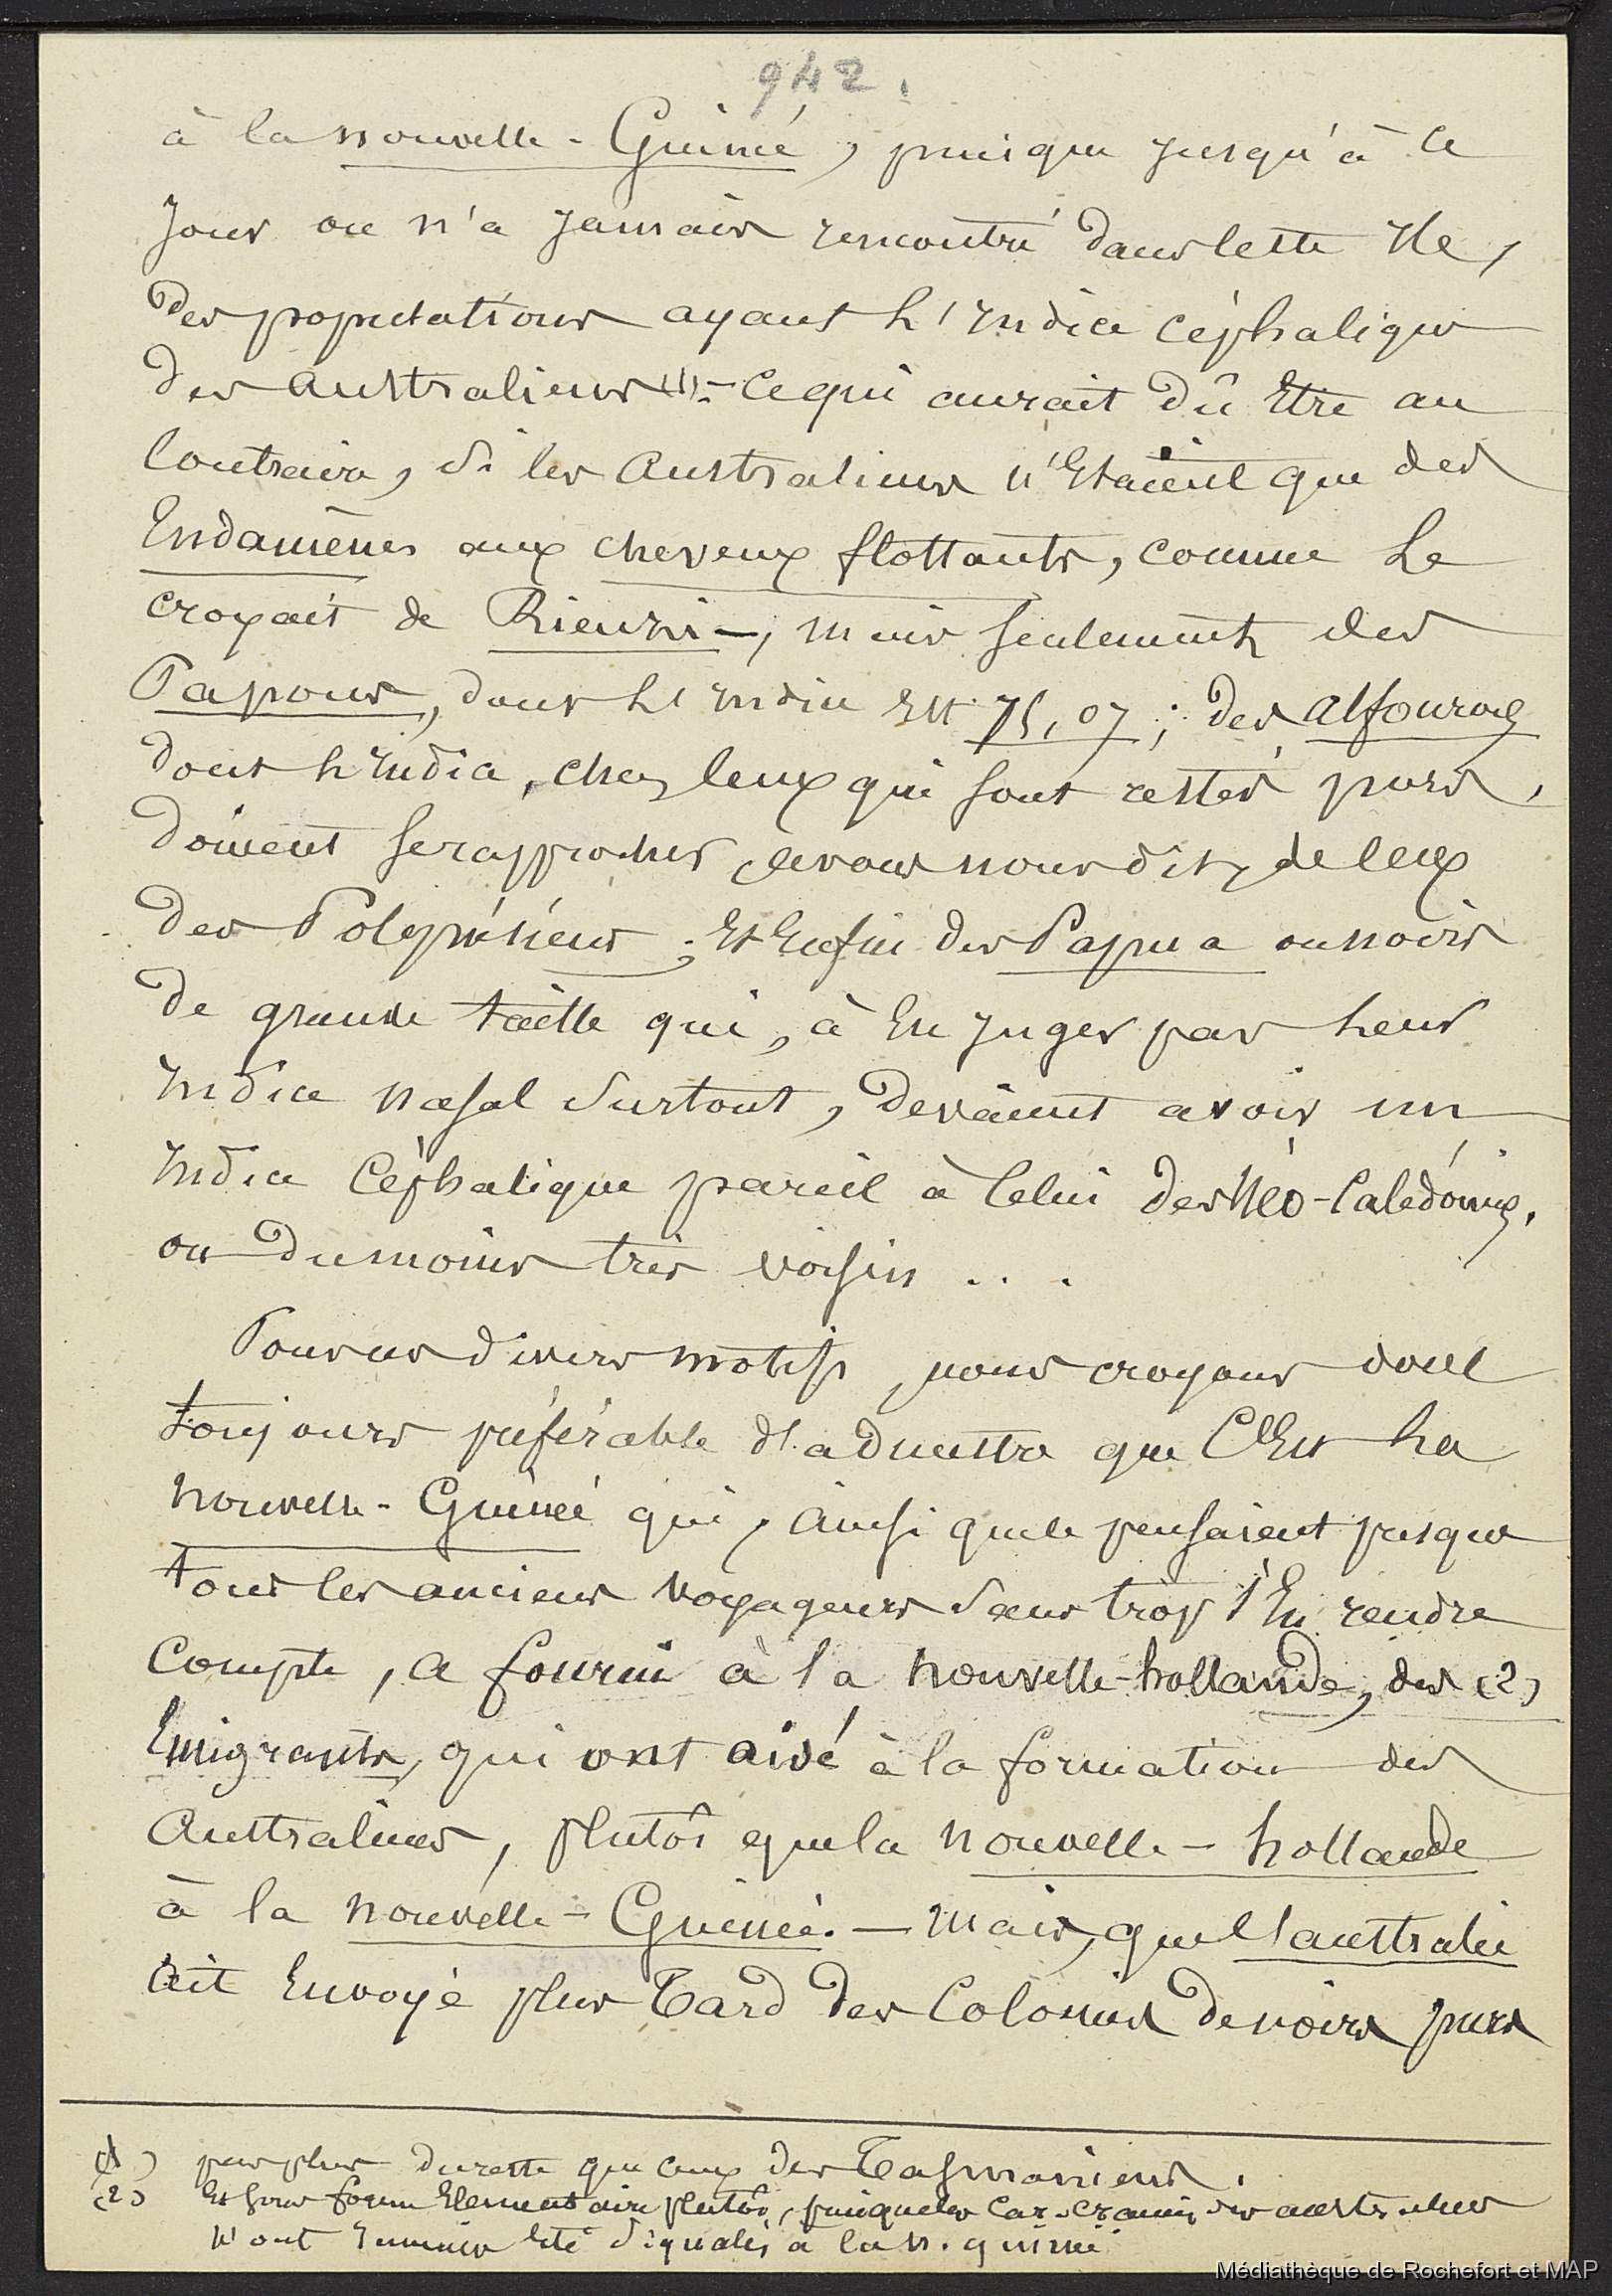 942.
à la nouvelle-Guinée, puisque jusqu'à ce
jour on n'a jamais rencontré dans cette île,
des populations ayant l'indice céphalique
des Australiens (1). - ce qui aurait dû être au
contraire, si les Australiens n'étaient que des
Endamènes aux cheveux flottants, comme le
croyait de Rienzi -, mais seulement des
Papous, dont l'indice est 75,07; des alfourous
dont l'indice, chez ceux qui sont restés purs,
doivent se rapprocher, avons nous dit, de ceux
des Polynésiens; et enfin des Papua ou noirs
de grande taille qui, à en juger par leur
indice nasal surtout, devaient avoir un
indice céphalique pareil à celui des Néo-Calédoniens,
ou du moins très voisin ...
Pour ces divers motifs, nous croyons donc
toujours préférable d'admettre que c'est la
nouvelle-Guinée qui, ainsi que le pensaient presque
tous les anciens voyageurs sans trop s'en rendre
compte, a fourni à la nouvelle-hollande, des (2)
Emigrants, qui ont aidé à la formation des
Australiens, plutôt que la nouvelle-hollande
à la nouvelle-Guinée. - Mais, que l'australie
ait envoyé plus tard des colonies de noirs purs
(1) pas plus du reste que ceux des Tasmaniens.
(2) Et sous forme Elementaire plutôt, puisque les car. craniens des austrnliens
n'ont jamais été signalés à la n. guinée
Médiathèque de Rochefort et MAP